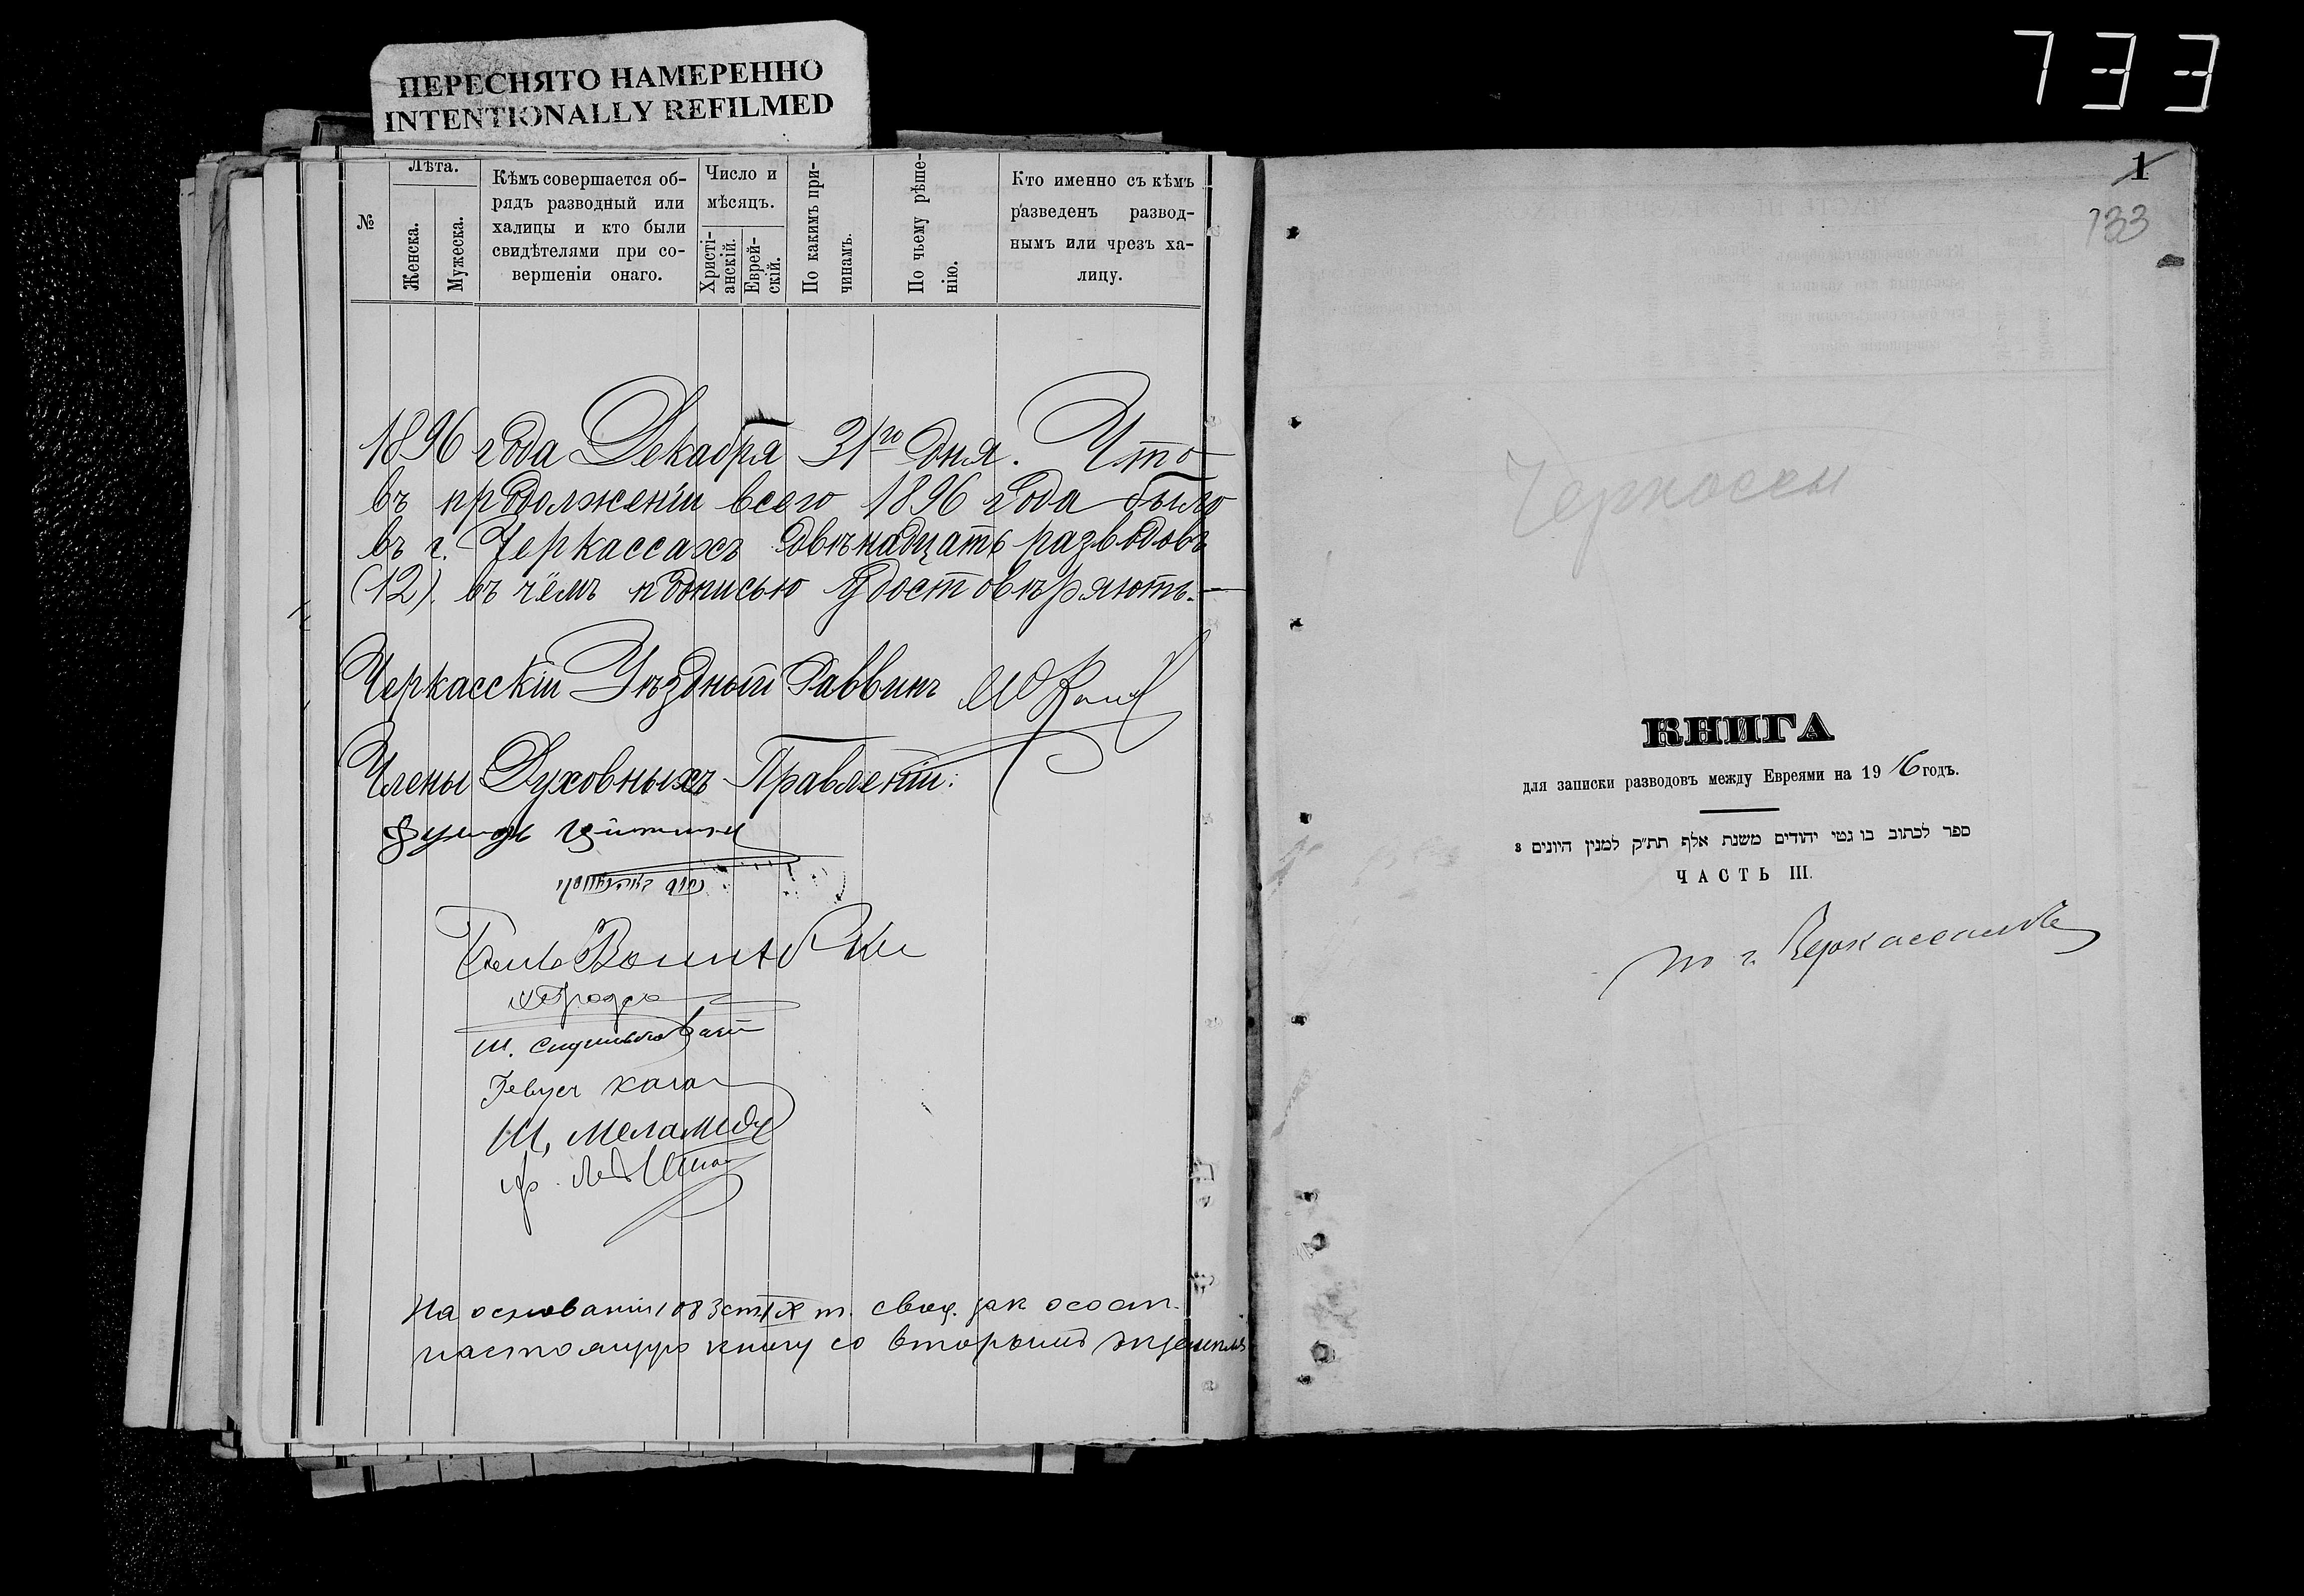 733
ПЕРЕСНЯТО НАМЕРЕННО
INTENTIONALLY REFILMED
№
Лѣта.
Женска.
Мужеска.
Кѣмъ совершается об-
рядъ разводный или
халицы и кто были
свидѣтелями при со-
вершеніи онаго.
Число и
мѣсяцъ.
Христі-
анскій.
Еврей-
скій.
По какимъ при-
чинамъ.
По чьему рѣше-
нію.
Кто именно съ кѣмъ
разведенъ развод-
нымъ или чрезъ ха-
лицу.
1896 года Декабря 31го дня. Что
въ продолженіи всего 1896 года было
въ г. Черкассахъ двѣнадцать разводовъ
(12). въ чёмъ подписью удостовѣряютъ.
Черкасскій Уѣздный Раввинъ
Члены Духовныхъ Правленій:
Ш. Меламедъ
На основаніи 1083 ст. IX т. свод. зак о сост.
настоящую книгу со вторымъ экземпля
1
733
Черкассы
КНИГА
для записки разводовъ между Евреями на 1916 годъ.
ספר לכתוב בו גטי יהודים משנת אלף תת״ק למנין היונים 8
ЧАСТЬ III.
по г. Черкассамъ